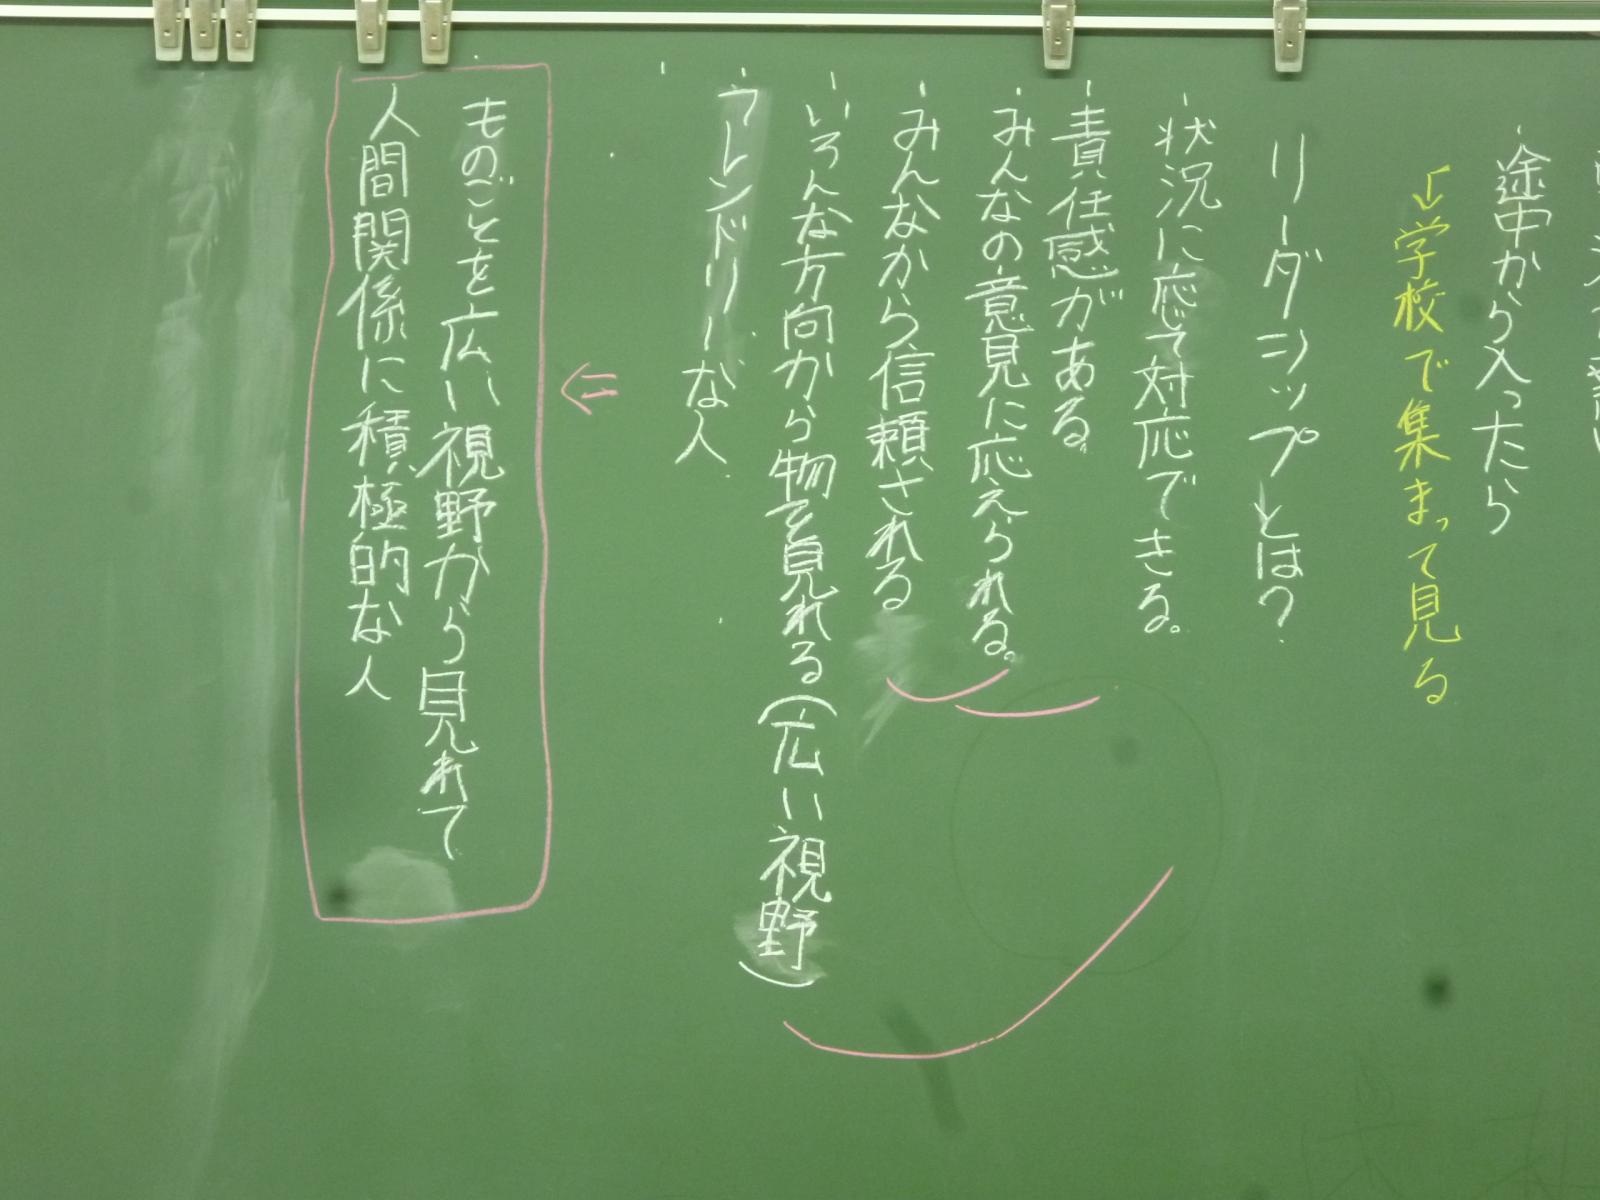 ・途中から入ったら
↓学校で集まって見る
リーダシップとは?
・状況に応じて対応できる。
・責任感がある。
・みんなの意見に応えられる。
・みんなから信頼される
・いろんな方向から物を見れる(広い視野)
・フレンドリーな人
・
⇐
ものごとを広い視野から見れて
人間関係に積極的な人